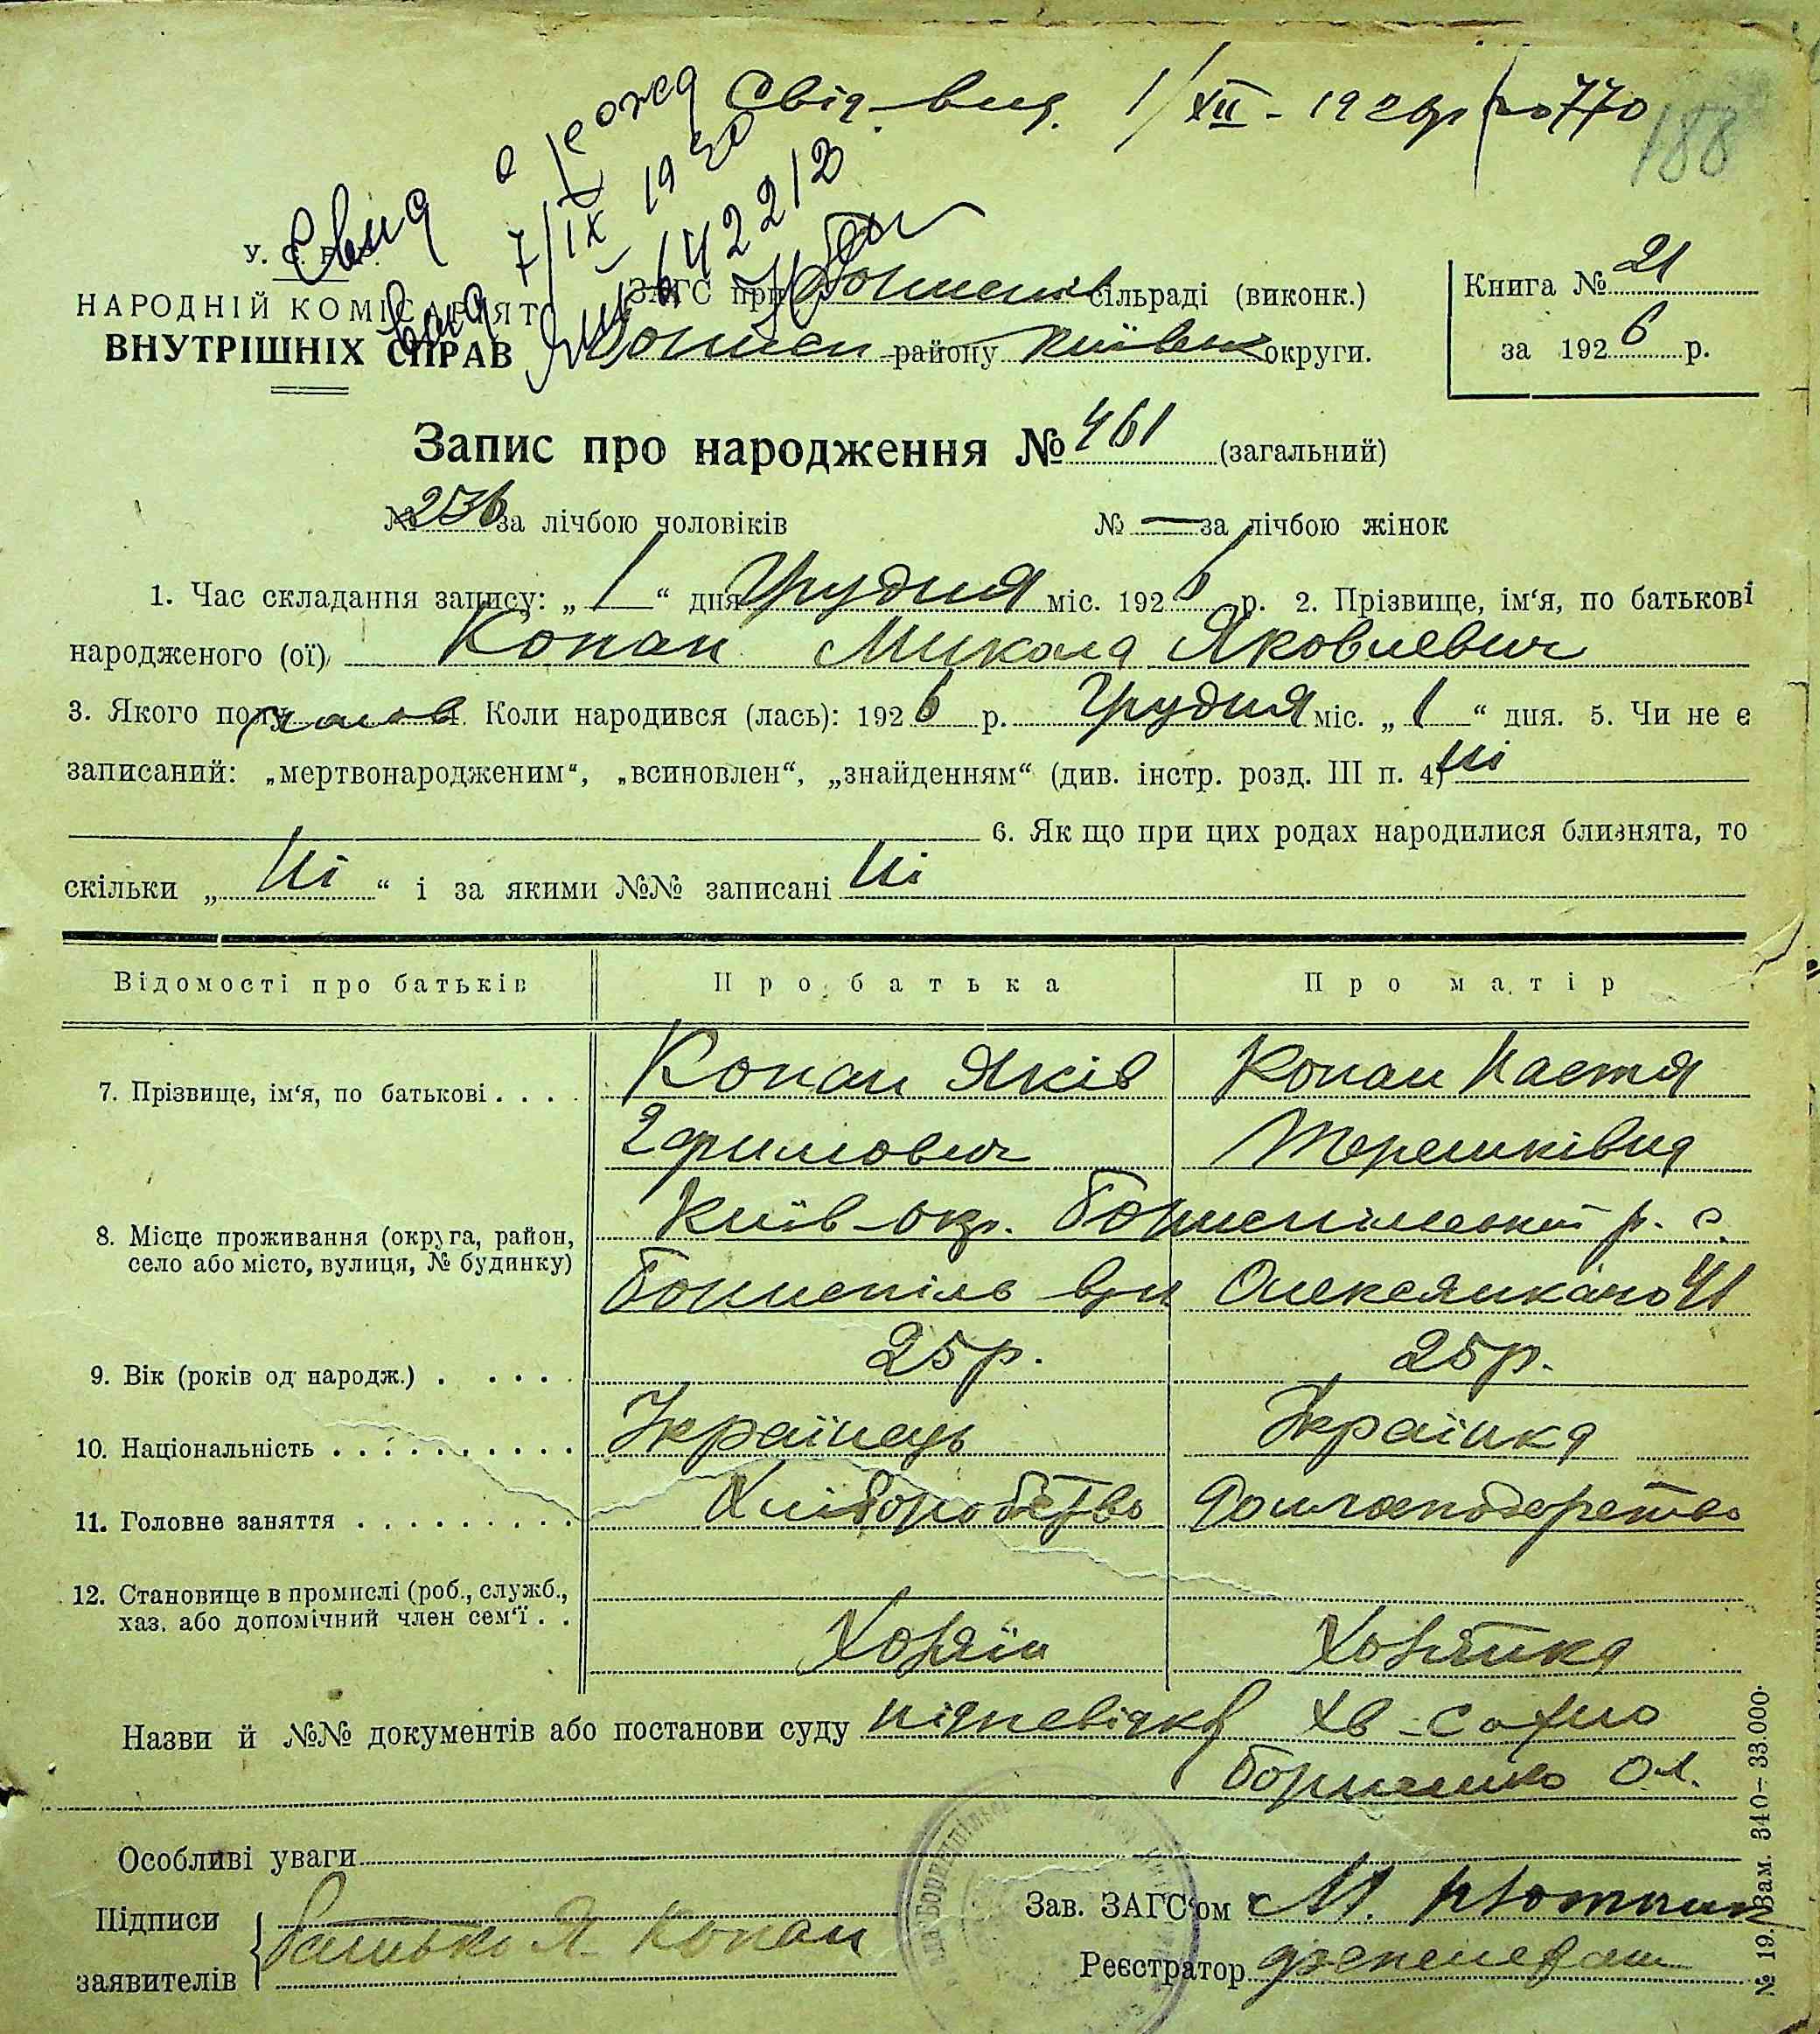 Свід. вид. 1/XII - 192 р 770
188
Свид о рожд
выд 7/IX 1930
642212
У. С. Р. Р.
НАРОДНІЙ КОМІСАРІЯТ
ВНУТРІШНІХ СПРАВ
ЗАГС при Бориспіл сільраді (виконк.)
Борисп району Київськ округи.
Книга № 21
за 1926 р.
Запис про народження № 461 (загальний)
№ 236 за лічбою чоловіків № — за лічбою жінок
1. Час складання запису: „ 1 “ дня Грудня міс. 1926 р. 2. Прізвище, ім‘я, по батькові
народженого (ої) Копан Микола Яковлевич
3. Якого полу чолов 4. Коли народився (лась): 1926 р. Грудня міс. „ 1 “ дня. 5. Чи не є
записаний: „мертвонародженим“, „всиновлен“, „знайденням“ (див. інстр. розд. III п. 4) Ні
6. Як що при цих родах народилися близнята, то
скільки „ Ні “ і за якими №№ записані Ні
Відомості про батьків Про батька Про матір
7. Прізвище, ім‘я, по батькові . . . . Копан Яків Копан Настя
Єфимович Терешківна
8. Місце проживання (округа, район, село або місто, вулиця, № будинку) Київ-окр. Бориспільский р. с.
Бориспіль вул Олексянкано 41
9. Вік (років од народж.) . . . . . 25 р. 25 р.
10. Національність . . . . . . . . . . Українець Українка
11. Головне заняття . . . . . . . . . Хліборобство Домгосподарство
12. Становище в промислі (роб., служб., хаз. або допомічний член сем‘ї . .
Хозяїн Хозяйка
Назви й №№ документів або постанови суду
Ол.
Особливі уваги
Підписи
заявителів
батько Я Копан
Зав. ЗАГС‘ом М.
Реєстратор
№ 19. Зам. 340—33.000.